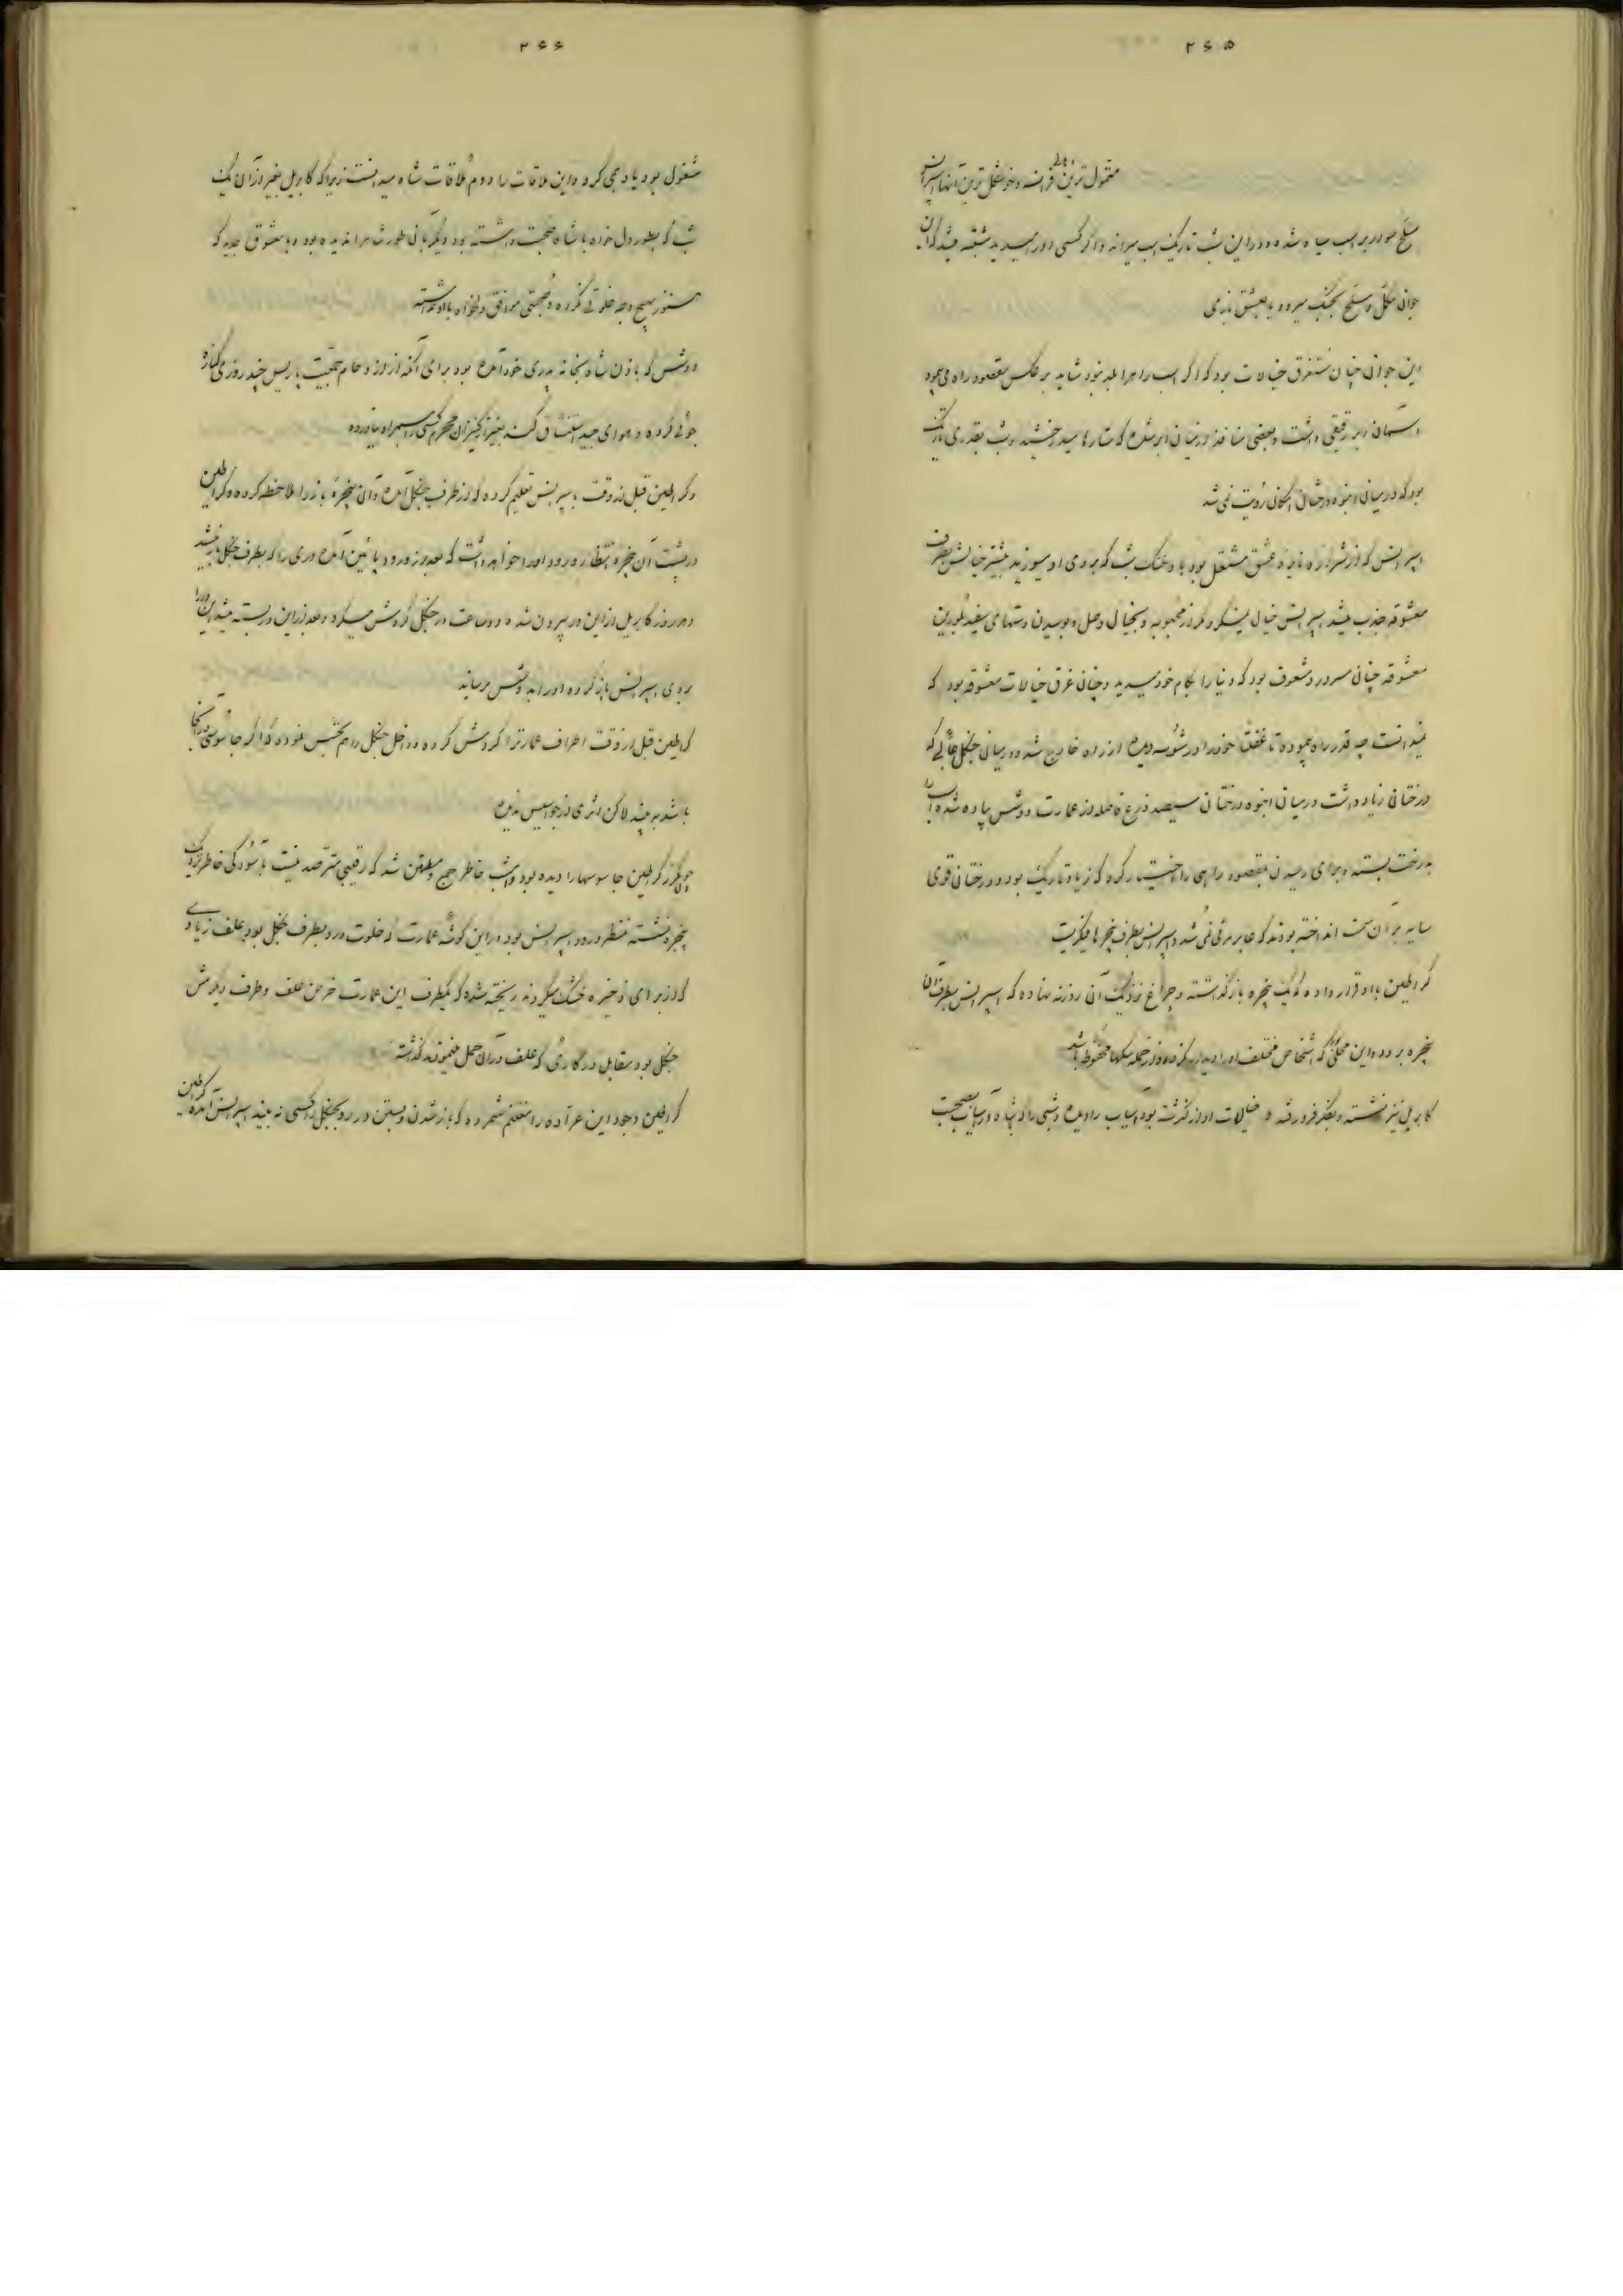 ۲۶۵
متمول ترین اهالی فرانسه و خوشگل ترین آنها اسپرانس
مسلح سوار بر اسب سیاه شده و در این شب تاریک اسب میراند و اگر کسی او را میدید مشتبه میشد که این
جوان مکمل و مسلح بجنگ میرود یا بعشق بازی
این جوان چنان مستغرق خیالات بود که اگر اسب راه را بلد نبود شاید بر عکس مقصود راه می پیمود
آسمان ابر رقیقی داشت و بعضی منافذ در میان ابر شده که ستارها میدرخشید و شب بقدری تاریک
بود که در میان انبوه درختان امکان رؤیت نمی شد
اسپرانس که از شراره نایره عشق مشتعل بود باد خنک شب که بروی او میوزید بیشتر خیالش بطرف
معشوقه جذب میشد اسپرانس خیال نمیکرد مگر از محبوبه و بخیال وصل و بوسیدن دستهای سفید بلورین
معشوقه چنان مسرور و مشعوف بود که دنیا را بکام خود میدید و چنان غرق خیالات معشوقه بود که
نمیدانست چه قدر راه پیموده تا غفلتا خود را در دیده از راه خارج شد و در میان جنگل که
درختان زیاد داشت در میان انبوه درختان سیصد ذرع فاصله از عمارت دوشس پیاده شده اسب را
بدرخت بسته و برای رسیدن بمقصود راهی را اختیار کرد که زیاد تاریک بود و درختان قوی
سایه بر آن سمت انداخته بودند که عابر مرئی نمی شد و اسپرانس بطرف پنجره ها میگریست
گراطین با او قرار داده که یک پنجره باز گذاشته و چراغ نزدیک آن روزنه نهاده که اسپرانس بطرف آن
پنجره برود و این محلی که اشخاص مختلف او را دیدار نکرده و از حمله سگها محفوظ باشد
کابریل نیز نشسته و بفکر فرو رفته و خیالات او از گذشته بود اسباب را دیده و شبی را که با شاه در میان صحبت
۲۶۶
مشغول بود یاد می کرد و این ملاقات را دوم ملاقات شاه میدانست زیرا که کابریل بغیر از آن یک
شب که بطور دل خواه با شاه صحبت داشته بود دیگر بآن طور شاه را ندیده بود و با معشوق جدید که
هنوز بهیچ وجه خلوتی نکرده و صحبتی موافق دلخواه با او نداشته
دوشس که با ذن شاه بخانه پدری خود آمده بود برای آنکه از ازدحام جمعیت پاریس چند روزی کناره
جوئی کرده و هوای جدید استنشاق کند بغیر از کنیزان محرم کسی را همراه نیاورده
و گراطین قبل از وقت باسپرانس تعلیم کرده که از طرف جنگل آمده و آن پنجره باز را ملاحظه کرده و گراطین
در پشت آن پنجره انتظار ورود او را خواهد داشت که بعد از ورود پائین آمده دری را که بطرف جنگل باز میشد
و هر روز کابریل از این در بیرون شده دو ساعت در جنگل گردش میکرد و بعد از این در بسته میشد این در را
بروی اسپرانس باز کرده او را به دوشس برساند
گراطین قبل از وقت اطراف عمارت را گردش کرده و داخل جنگل را هم تجسس نموده که اگر جاسوسی در آنجا
باشد به بیند لاکن اثری از جواسیس ندیده
چون گراطین جاسوسها را دیده بود خاطر جمع و مطمئن شد که رقیبی مترصد نیست بآسودگی خاطر نزدیک
پنجره نشسته منتظر ورود اسپرانس بود در این گوشه عمارت که خلوت و رو بطرف جنگل بود علف زیادی
که از برای ذخیره خشک میکردند ریخته شده که یکطرف این عمارت خرمن علف و طرف دیگرش
جنگل بود مقابل در گاری که علف در آن حمل مینمودند گذاشته
گراطین وجود این عراده را مغتنم شمرده که باز شدن و بستن در رو بجنگل را کسی نه بیند اسپرانس آمده گراطین